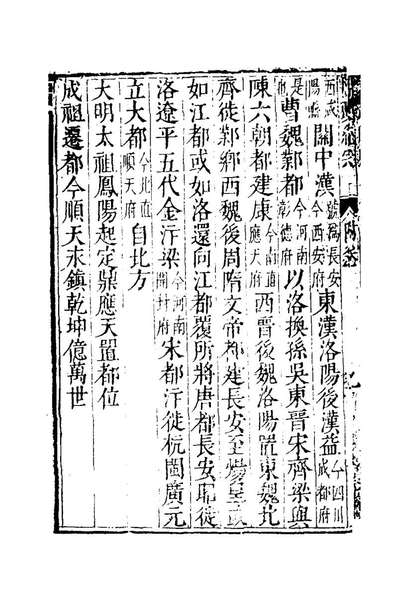 西咸陽縣關中漢號為長安今西安府東漢洛陽後漢益今四川成都府
是也曹魏鄴都今河南彰德府以洛換孫吳東晉宋齊梁與
陳六朝都建康今南直應天府西晉後魏洛陽置東魏北
齊徙鄴鄉西魏後周隋文帝都建長安至煬皇或
如江都或如洛還向江都覆所將唐都長安昭徙
洛遼平五代金汴梁今河南開封府宋都汴徙杭閩廣元
立大都今北直順天府自北方
大明太祖鳳陽起定鼎應天置都位
成祖遷都今順天永鎮乾坤億萬世